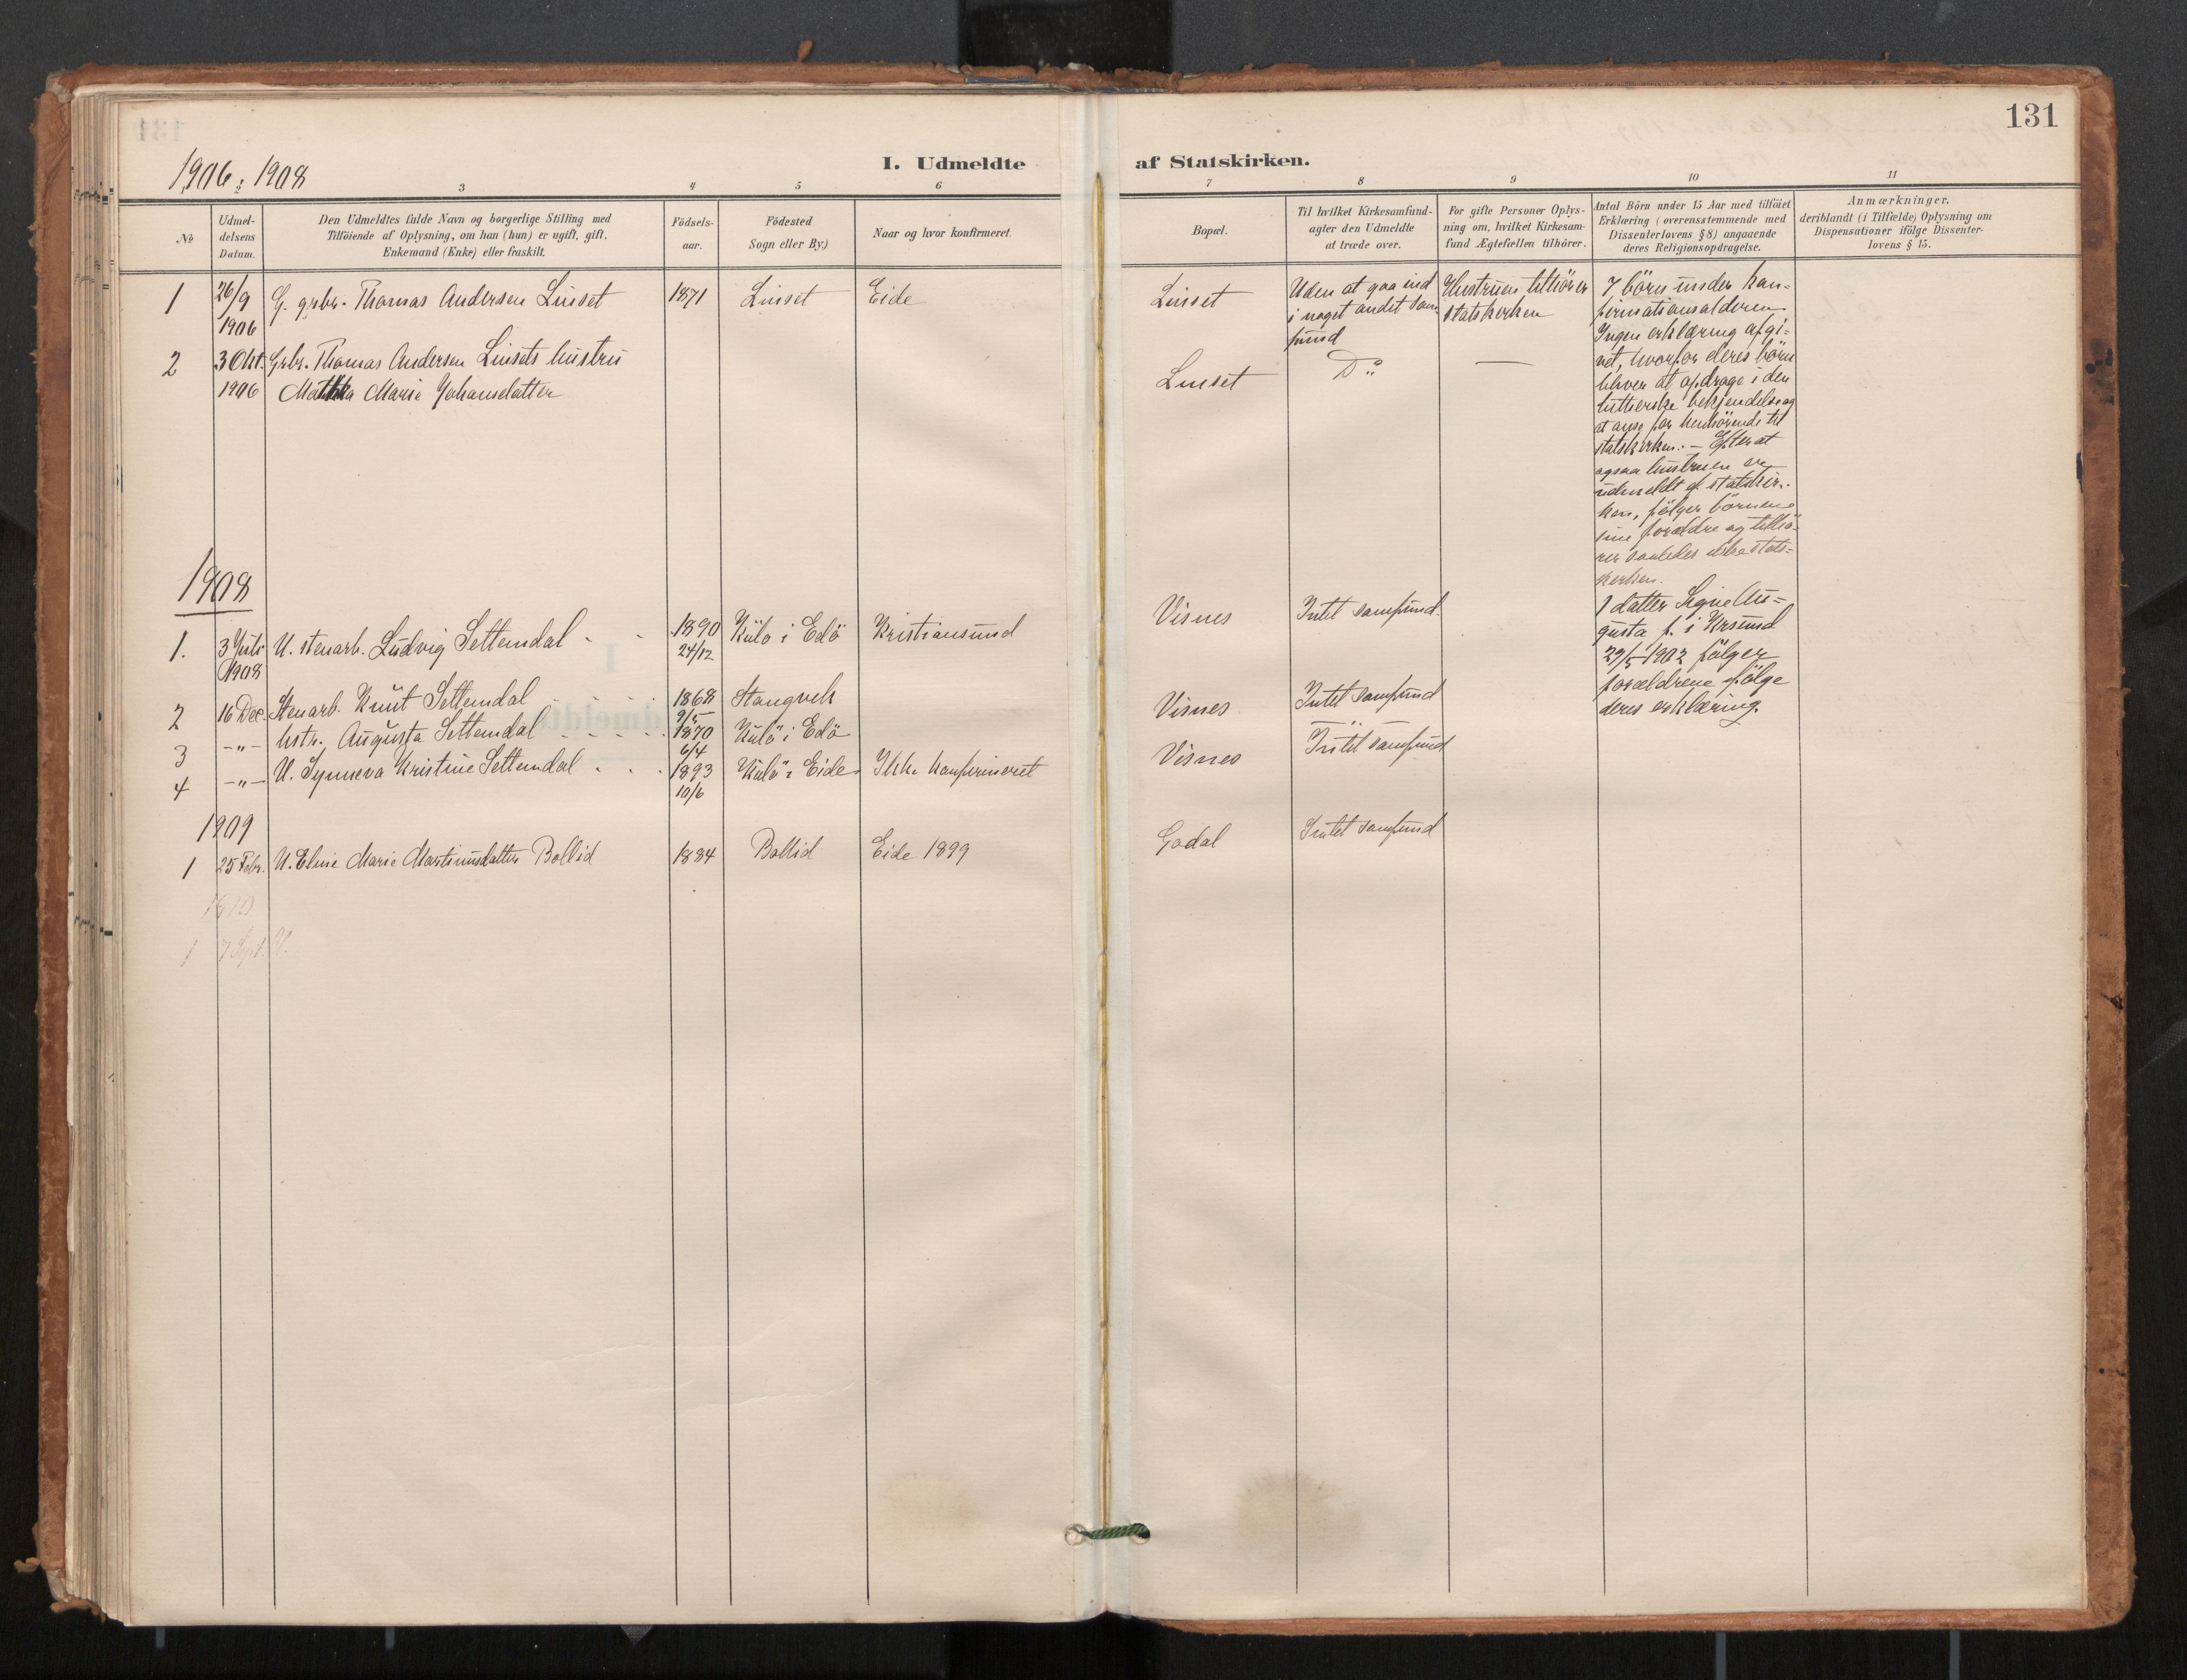 131
1906 : 1908
I. Udmeldte af Statskirken.
3 4 5 6 7 8 9 10 11
№
Udmel-
delsens
Datum.
Den Udmeldtes fulde Navn og borgerlige Stilling med
Tilföiende af Oplysning, om han (hun) er ugift, gift,
Enkemand (Enke) eller fraskilt.
Födsels-
aar.
Födested
Sogn eller By.)
Naar og hvor konfirmeret.
Bopæl.
Til hvilket Kirkesamfund-
agter den Udmeldte
at træde over.
For gifte Personer Oplys-
ning om, hvilket Kirkesam-
fund Ægtefællen tilhörer.
Antal Börn under 15 Aar med tilföiet
Erklæring (overensstemmende med
Dissenterlovens § 8) angaaende
deres Religionsopdragelse.
Anmærkninger,
deriblandt (i Tilfælde) Oplysning om
Dispensationer ifölge Dissenter-
lovens § 15.
1 26/9 G. grbr. Thomas Andersen Linset 1871 Linset Eide
1906
Linset
Uden at gaa ind
i noget andet sam
fund
Hustruen tilhörer
statskirken
7 börn under kon=
firmationsalderen
Ingen erklæring afgi=
vet, hvorfor deres börn
bliver at opdrage i den
lutherske bekjendelse og
at anse for henhörende til
statskirken. - Efter at
ogsaa hustruen er
udmeldt af statskir-
ken, fölger börnene
sine forældre og tilhö-
rer saaledes ikke stats=
kirken.
2 3 Okt. Grbr. Thomas Andersen Linsets hustru
1906 Marie Johansdatter
Linset Do —
1908
1. 3 Juli U. stenarb. Ludvig Settemdal 1890 Kulö i Edö Kristiansund
1908 24/12
Visnes Intet samfund.
1 datter Signe Au=
gusta f. i Krsund
29/5 1902 fölger
forældrene ifölge
deres erklæring.
2 16 Dec. Stenarb. Knut Settemdal 1868 Stangvik
9/5
Visnes Intet samfund
3 -"- hstr. Augusta Settemdal 1870 Kulö i Edö
6/4
Visnes Intet samfund
4 -"- U. Synneva Kristine Settemdal 1893 Kulö i Eide Ikke konfirmeret
10/6
1909
1 25 Febr. U. Eline Marie Martinusdatter Bollid 1884 Bollid Eide 1899
Gadal Intet samfund
1 7 Sept. U.